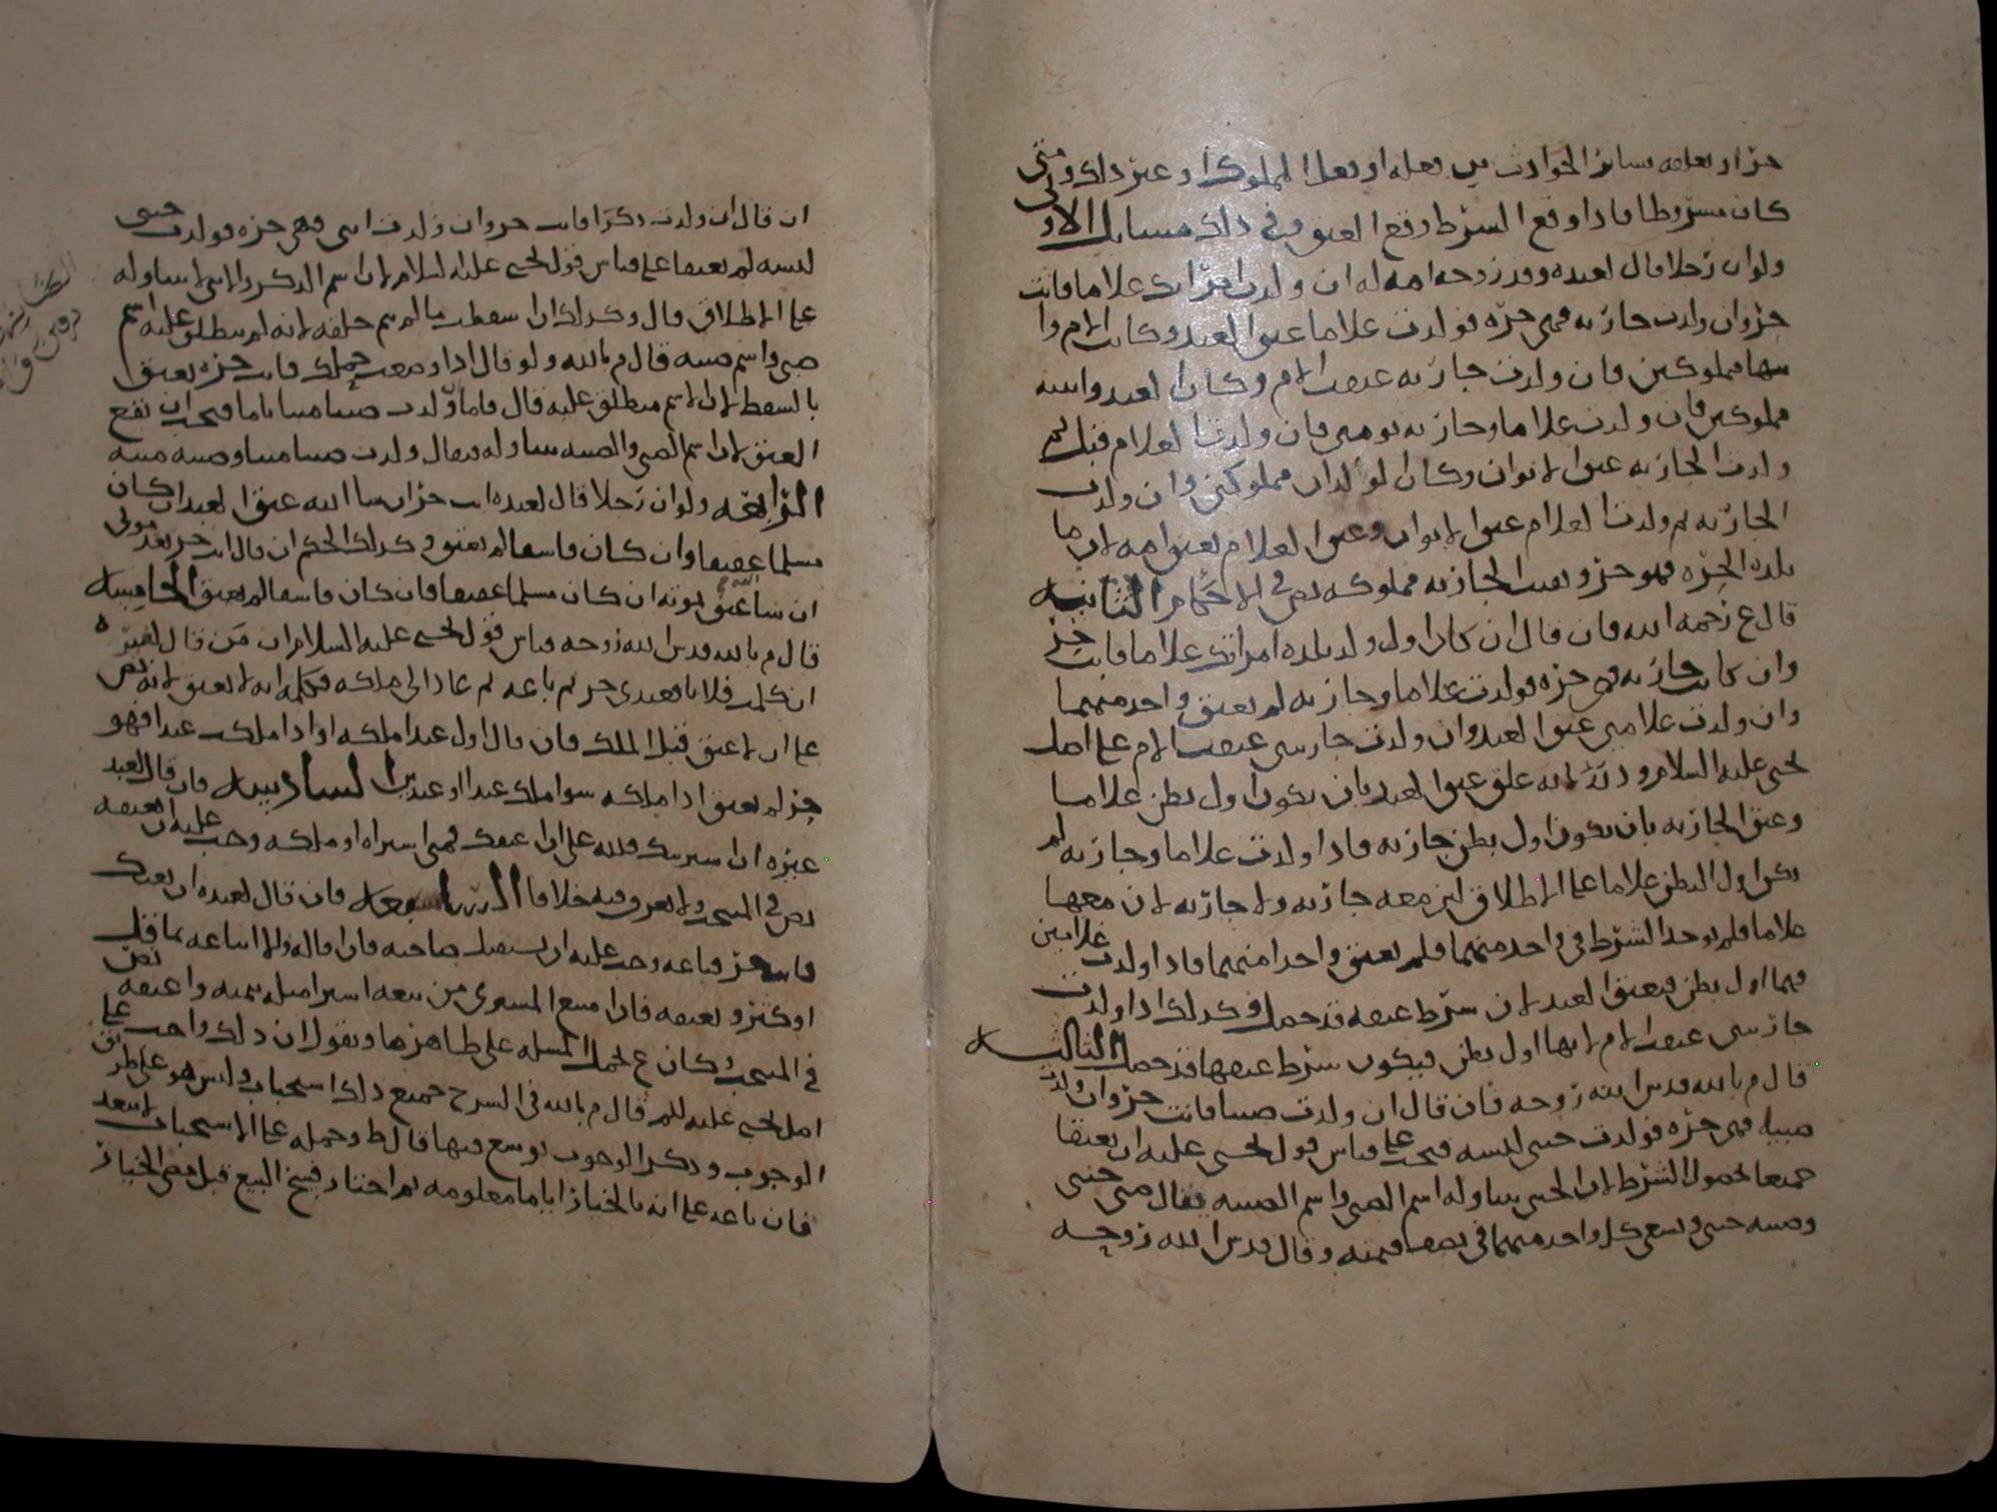 حر او بعلقه بسائر الحوادث من فعله او فعل المملوك او غير ذلك ومتى
كان مشروطا فاذا وقع الشرط وقع العتق وفي ذلك مسائل الاولى
ولو ان رجلا قال لعبده وقد زوجه امه له ان ولدت امراتك غلاما فانت
حر وان ولدت جاريه فهي حره فولدت غلاما عتق العبد وكانت الام وا
بنها مملوكين فان ولدت جاريه عتقت الام وكان العبد وابنته
مملوكين فان ولدت غلاما وجاريه تومين فان ولدت الغلام قبل ثم
ولدت الجاريه عتق الابوان وكان الولدان مملوكين وان ولدت
الجاريه ثم ولدت الغلام عتق الابوان وعتق الغلام بعتق امه لان ما
تلده الحره فهو حر وبقيت الجاريه مملوكه نص في الاحكام الثانيه
قال ع رحمه الله فان قال ان كان اول ولد تلده امراتك غلاما فانت حر
وان كانت جاريه فهي حره فولدت غلاما وجاريه لم يعتق واحد منهما
وان ولدت غلامين عتق العبد وان ولدت جاريتين عتقت الام على اصل
يحيى عليه السلام وذلك لانه علق عتق العبد بان يكون اول بطن غلاما
وعتق الجاريه بان يكون اول بطن جاريه فاذا ولدت غلاما وجاريه لم
يكن اول البطن غلاما على الاطلاق ليس معه جاريه ولا جاريه لان معها
غلاما فلم يوجد الشرط في واحد منهما فلم يعتق واحدا منهما فاذا ولدت غلامين
فهما اول بطن فيعتق العبد لان شرط عتقه قد حصل وكذلك اذا ولدت
جاريتين عتقت الام لانها اول بطن فيكون شرط عتقها قد حصل الثالثه
قال م بالله قدس الله روحه فان قال ان ولدت صبيا فانت حر وان ولدت
صبيه فهي حره فولدت خنثى لبسه فيجب على قياس قول يحيى عليه ان يعتقا
جميعا لحصول الشرط لان الخنثى يتناوله اسم الصبي واسم الصبيه فيقال صبي خنثى
وصبيه خنثى ويسعى كل واحد منهما في نصف قيمته وقال قدس الله روحه
ان قال ان ولدت ذكرا فانت حر وان ولدت انثى فهي حره فولدت خنثى
لبسه لم يعتقا على قياس قول يحيى عليه السلام لان اسم الذكر والانثى لا يتناوله
على الاطلاق قال وكذلك ان اسقطت ما لم يتم خلقه لانه لم ينطلق عليه اسم
صبي واسم صبيه قال م بالله ولو قال اذا وضعت حملك فانت حره يعتق
بالسقط لان الاسم منطلق عليه قال فاما ولدت صبيا ميتا تاما فيجب ان يقع
العتق لان اسم الصبي والصبيه يتناوله فيقال ولدت صبيا ميتا وصبيه ميته
الرابعه ولو ان رجلا قال لعبده انت حر ان شا الله عتق العبد ان كان
مسلما عفيفا وان كان فاسقا لم يعتق وكذلك الحكم ان قال انت حر بعد موتي
ان شا عتق بموته ان كان مسلما عفيفا فان كان فاسقا لم يعتق الخامسه
قال م بالله قدس الله روحه قياس قول يحيى عليه السلام ان من قال لغيره
ان كلمت فلانا فعبدي حر ثم باعه ثم عاد الى ملكه فكلمه انه لا يعتق لانه نص
على ان لا عتق قبل الملك فان قال اول عبد املكه او اذا ملكت عبدا فهو
حر لم يعتق اذا ملكه سوا ملك عبدا او عبدين السادسه فان قال لعبد
غيره ان اشتريتك فلله علي ان اعتقك فمتى اشتراه او ملكه وجب عليه ان يعتقه
نص في المنتخب ولا نعرف فيه خلافا السابعه فان قال لعبده ان بعتك
فانت حر فباعه وجب عليه ان يستقيل صاحبه فان اقاله والا ابتاعه بما قل
او كثر ويعتقه فان امتنع المشتري من بيعه اشترا مثله بثمنه واعتقه نص
في المنتخب وكان ع يحمل المسله على ظاهرها ويقول ان ذلك واجب على
اصل يحيى عليه السلم قال م بالله في الشرح جميع ذلك استحباب وليس هو على طريق
الوجوب وذكر الوجوب توسع فيها قال ط وحمله على الاستحباب لا يبعد
فان باعه على انه بالخيار اياما معلومه ثم اختار فسخ البيع قبل مضي الخيار